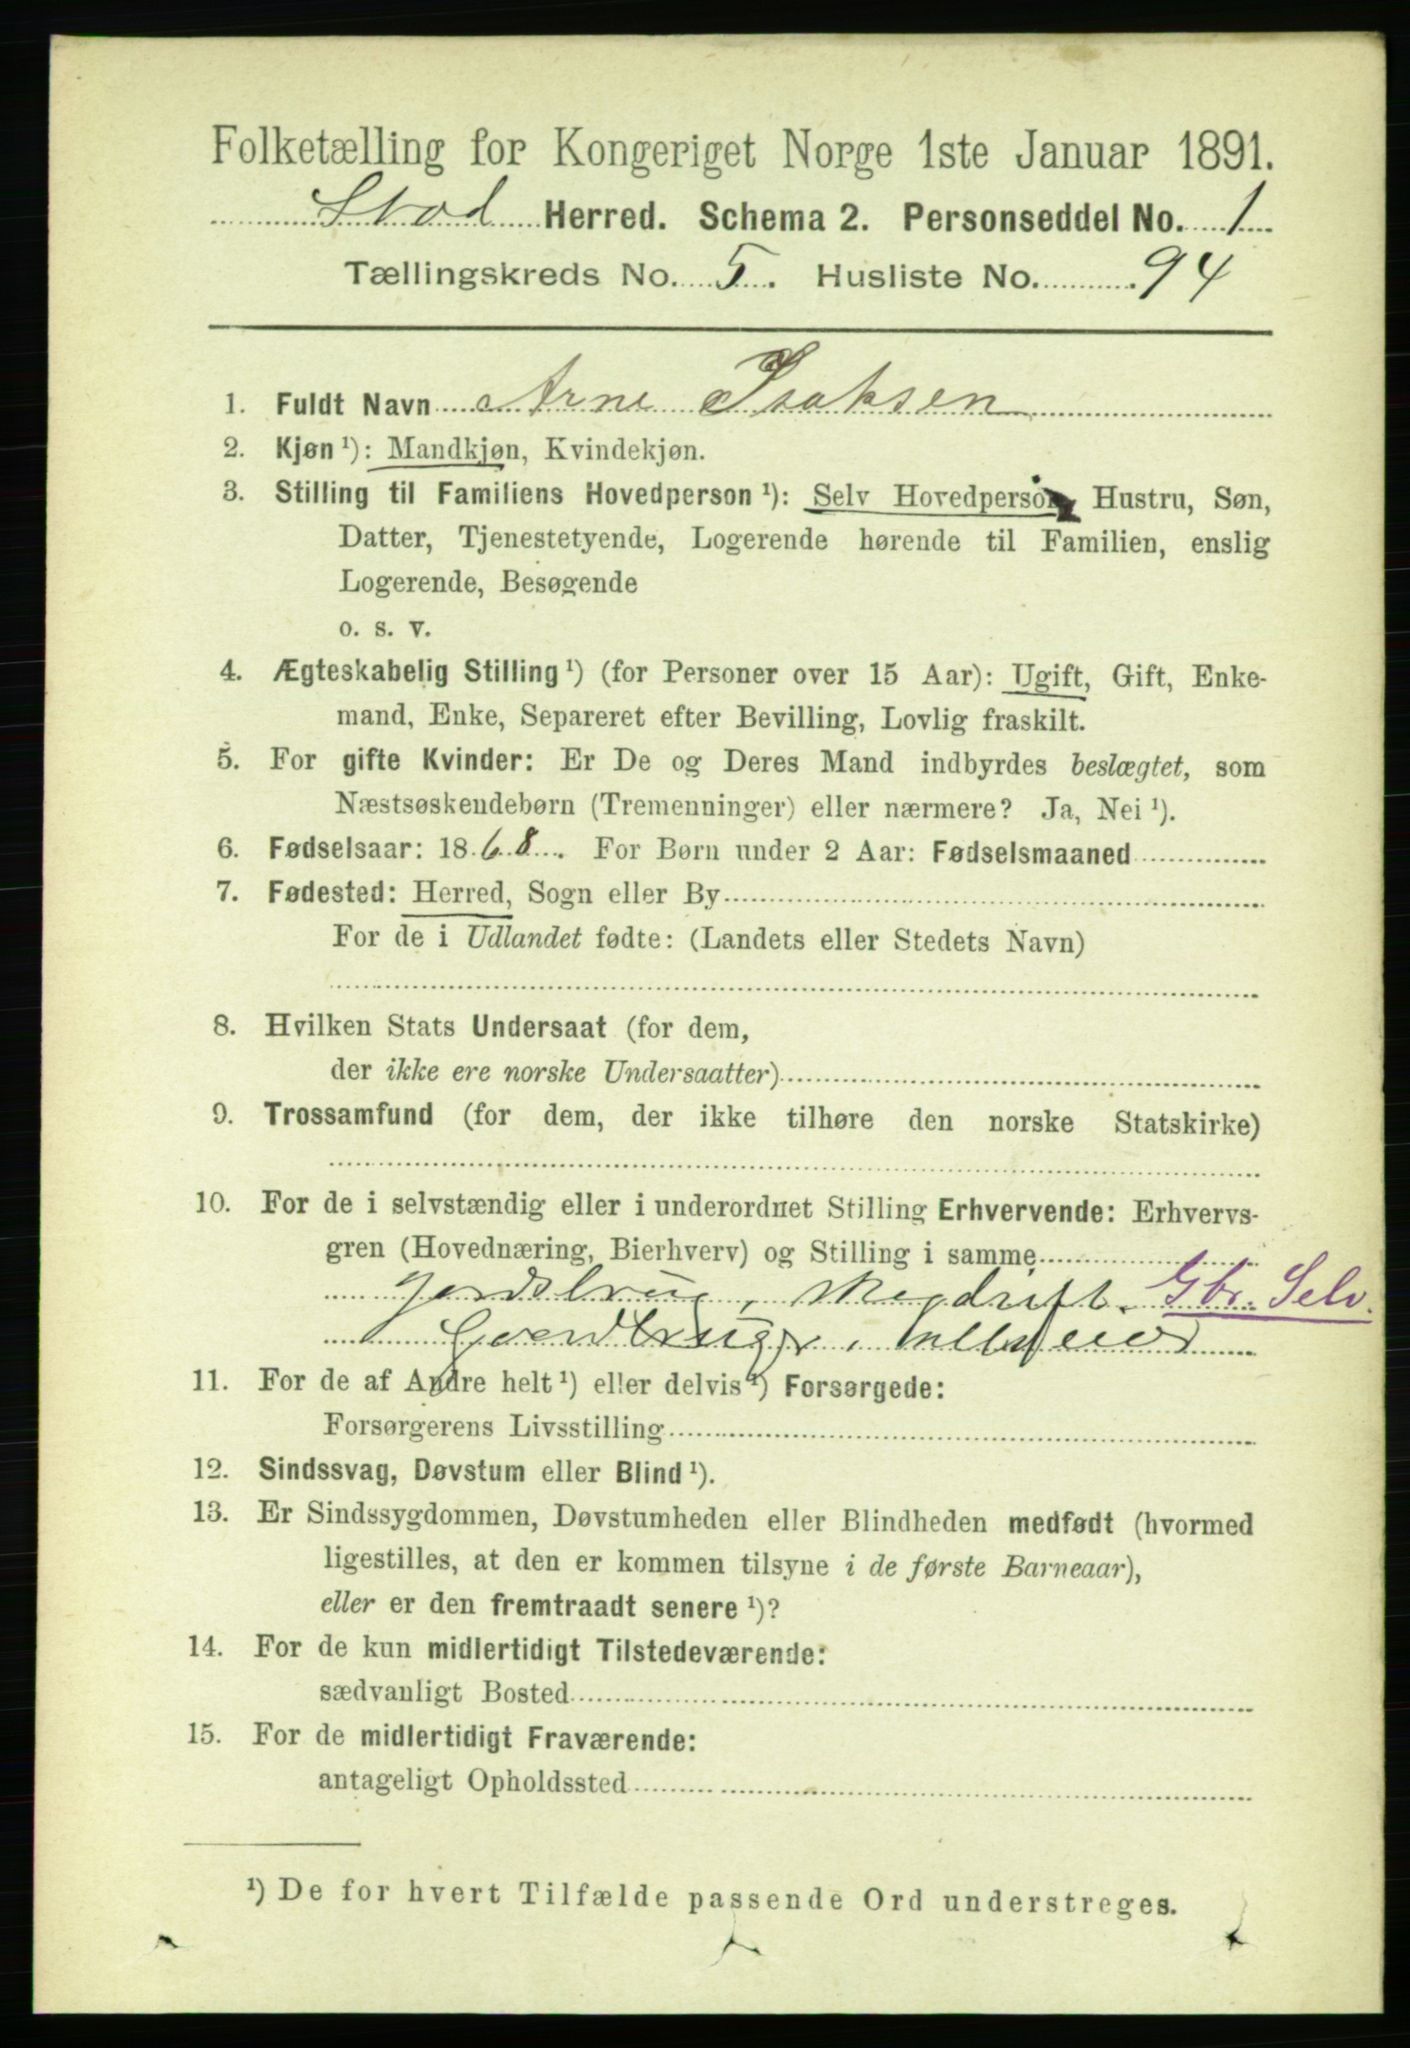 Folketælling for Kongeriget Norge 1ste Januar 1891.
Stod Herred. Schema 2. Personseddel No. 1
Tællingskreds No. 5. Husliste No. 94
1. Fuldt Navn Arne Isaksen
2. Kjøn ¹): Mandkjøn, Kvindekjøn.
3. Stilling til Familiens Hovedperson ¹): Selv Hovedperson, Hustru, Søn,
Datter, Tjenestetyende, Logerende hørende til Familien, enslig
Logerende, Besøgende
o. s. v.
4. Ægteskabelig Stilling ¹) (for Personer over 15 Aar): Ugift, Gift, Enke-
mand, Enke, Separeret efter Bevilling, Lovlig fraskilt.
5. For gifte Kvinder: Er De og Deres Mand indbyrdes beslægtet, som
Næstsøskendebørn (Tremenninger) eller nærmere? Ja, Nei ¹).
6. Fødselsaar: 1868. For Børn under 2 Aar: Fødselsmaaned
7. Fødested: Herred, Sogn eller By
For de i Udlandet fødte: (Landets eller Stedets Navn)
8. Hvilken Stats Undersaat (for dem,
der ikke ere norske Undersaatter)
9. Trossamfund (for dem, der ikke tilhøre den norske Statskirke)
10. For de i selvstændig eller i underordnet Stilling Erhvervende: Erhvervs-
gren (Hovednæring, Bierhverv) og Stilling i samme
Jordbrug, skogdrift. Gbr. Selv.
Gaardbruger, selveier
11. For de af Andre helt ¹) eller delvis ¹) Forsørgede:
Forsørgerens Livsstilling
12. Sindssvag, Døvstum eller Blind ¹).
13. Er Sindssygdommen, Døvstumheden eller Blindheden medfødt (hvormed
ligestilles, at den er kommen tilsyne i de første Barneaar),
eller er den fremtraadt senere ¹)?
14. For de kun midlertidigt Tilstedeværende:
sædvanligt Bosted
15. For de midlertidigt Fraværende:
antageligt Opholdssted
¹) De for hvert Tilfælde passende Ord understreges.